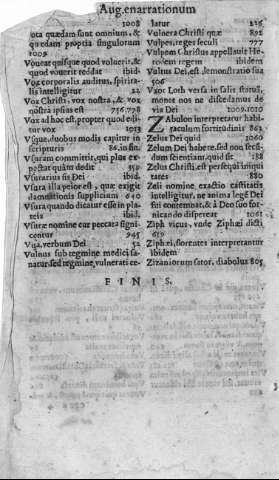 Aug. enarrationum
1008
iota quædam sunt omnium, &
quædam propria singulorum
1009
Voueat quisque quod voluerit, &
quod vouerit reddat ibid.
Vox corporalis auditus, spirita-
lis intelligitur 22
Vox Christi, vox nostra, & vox
nostra ipsius est 756.778
Vox ad hoc est, propter quod edi-
tur vox 1013
Vsque, duobus modis capitur in
scripturis 86. in fin.
Vsuram committit, qui plus ex-
pectat quàm dedit 350
Vsurarius sis Dei ibid.
Vsura illa peior est, quæ exigit
damnationis supplicium 640
Vsura quando dicatur esse in pla-
teis ibid.
Vsuræ nomine cur peccata signi-
centur 945
Vua, verbum Dei 52
Vulnus sub tegmine medici sa-
natur: sed tegmine vulnerati ce-
latur 226
Vulnera Christi quæ 895
Vulpes, reges seculi 977
Vulpem Christus appellauit He-
rodem regem ibidem
Vultus Dei, est demonstratio sua
706
Vxor Loth versa in salis statuã,
monet nos ne discedamus de
via Dei 1009.1010
Zabulon interpretatur habi-
taculum fortitudinis 863
Zelus Dei quid 1060
Zelum Dei habere, sed non secũ-
dum scientiam, quid sit 188
Zelus Christi, est persequi iniqui
tates 880
Zeli nomine, exactio castitatis
intelligitur, ne anima legẽ Dei
sui contemnat, & à Deo suo for-
nicando dispereat 1061
Ziph vicus, vnde Ziphæi dicti
619
Ziphæi, florentes interpretantur
ibidem
Zizaniorum sator, diabolus 805
FINIS.